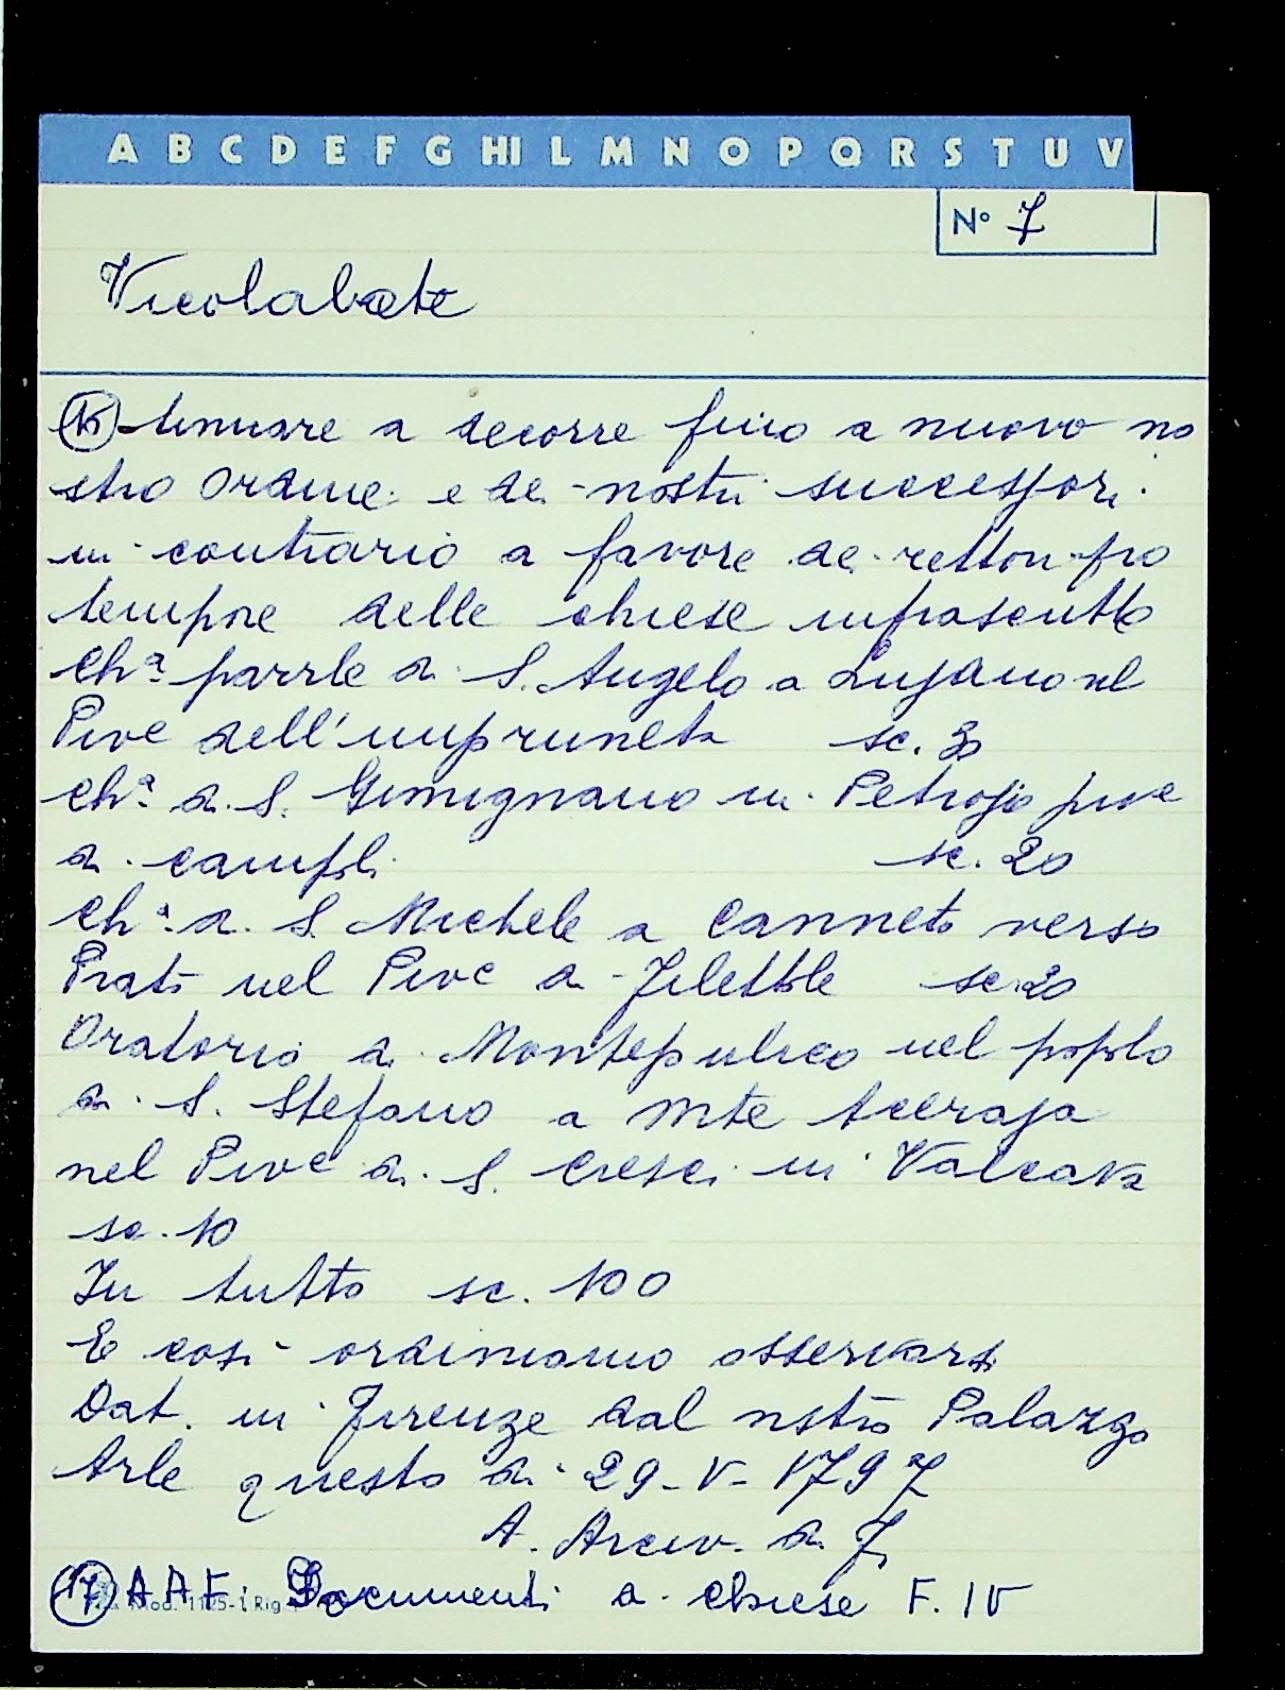 A B C D E F G HI L M N O P Q R S T U V
N° 7
Vicolabate
(16) tinuare a decorre fino a nuovo no
stro Ordine e dei nostri successori
in contrario a favore dei rettori pro
tempore delle chiese infrascritte
Ch.ª parrle di S. Angelo a Lujano nel
Pive dell'impruneta sc. 30
Ch.ª di S. Gimignano in Petrojo pive
di campoli sc. 20
Ch.ª di S. Michele a Canneto verso
Prato nel Pive di Filettole sc. 20
Oratorio di Montepulico nel popolo
di S. Stefano a Mte Aceraja
nel Pive di S. Cresci in Valcava
sc. 10
In tutto sc. 100
E così ordiniamo osservarsi
Dat. in Firenze dal nstro Palazzo
Arle questo dì 29-V-1797
A. Arciv. di F.
(17) A A F. Documenti di Chiese F. IV
Mod. 1125-1 Rig